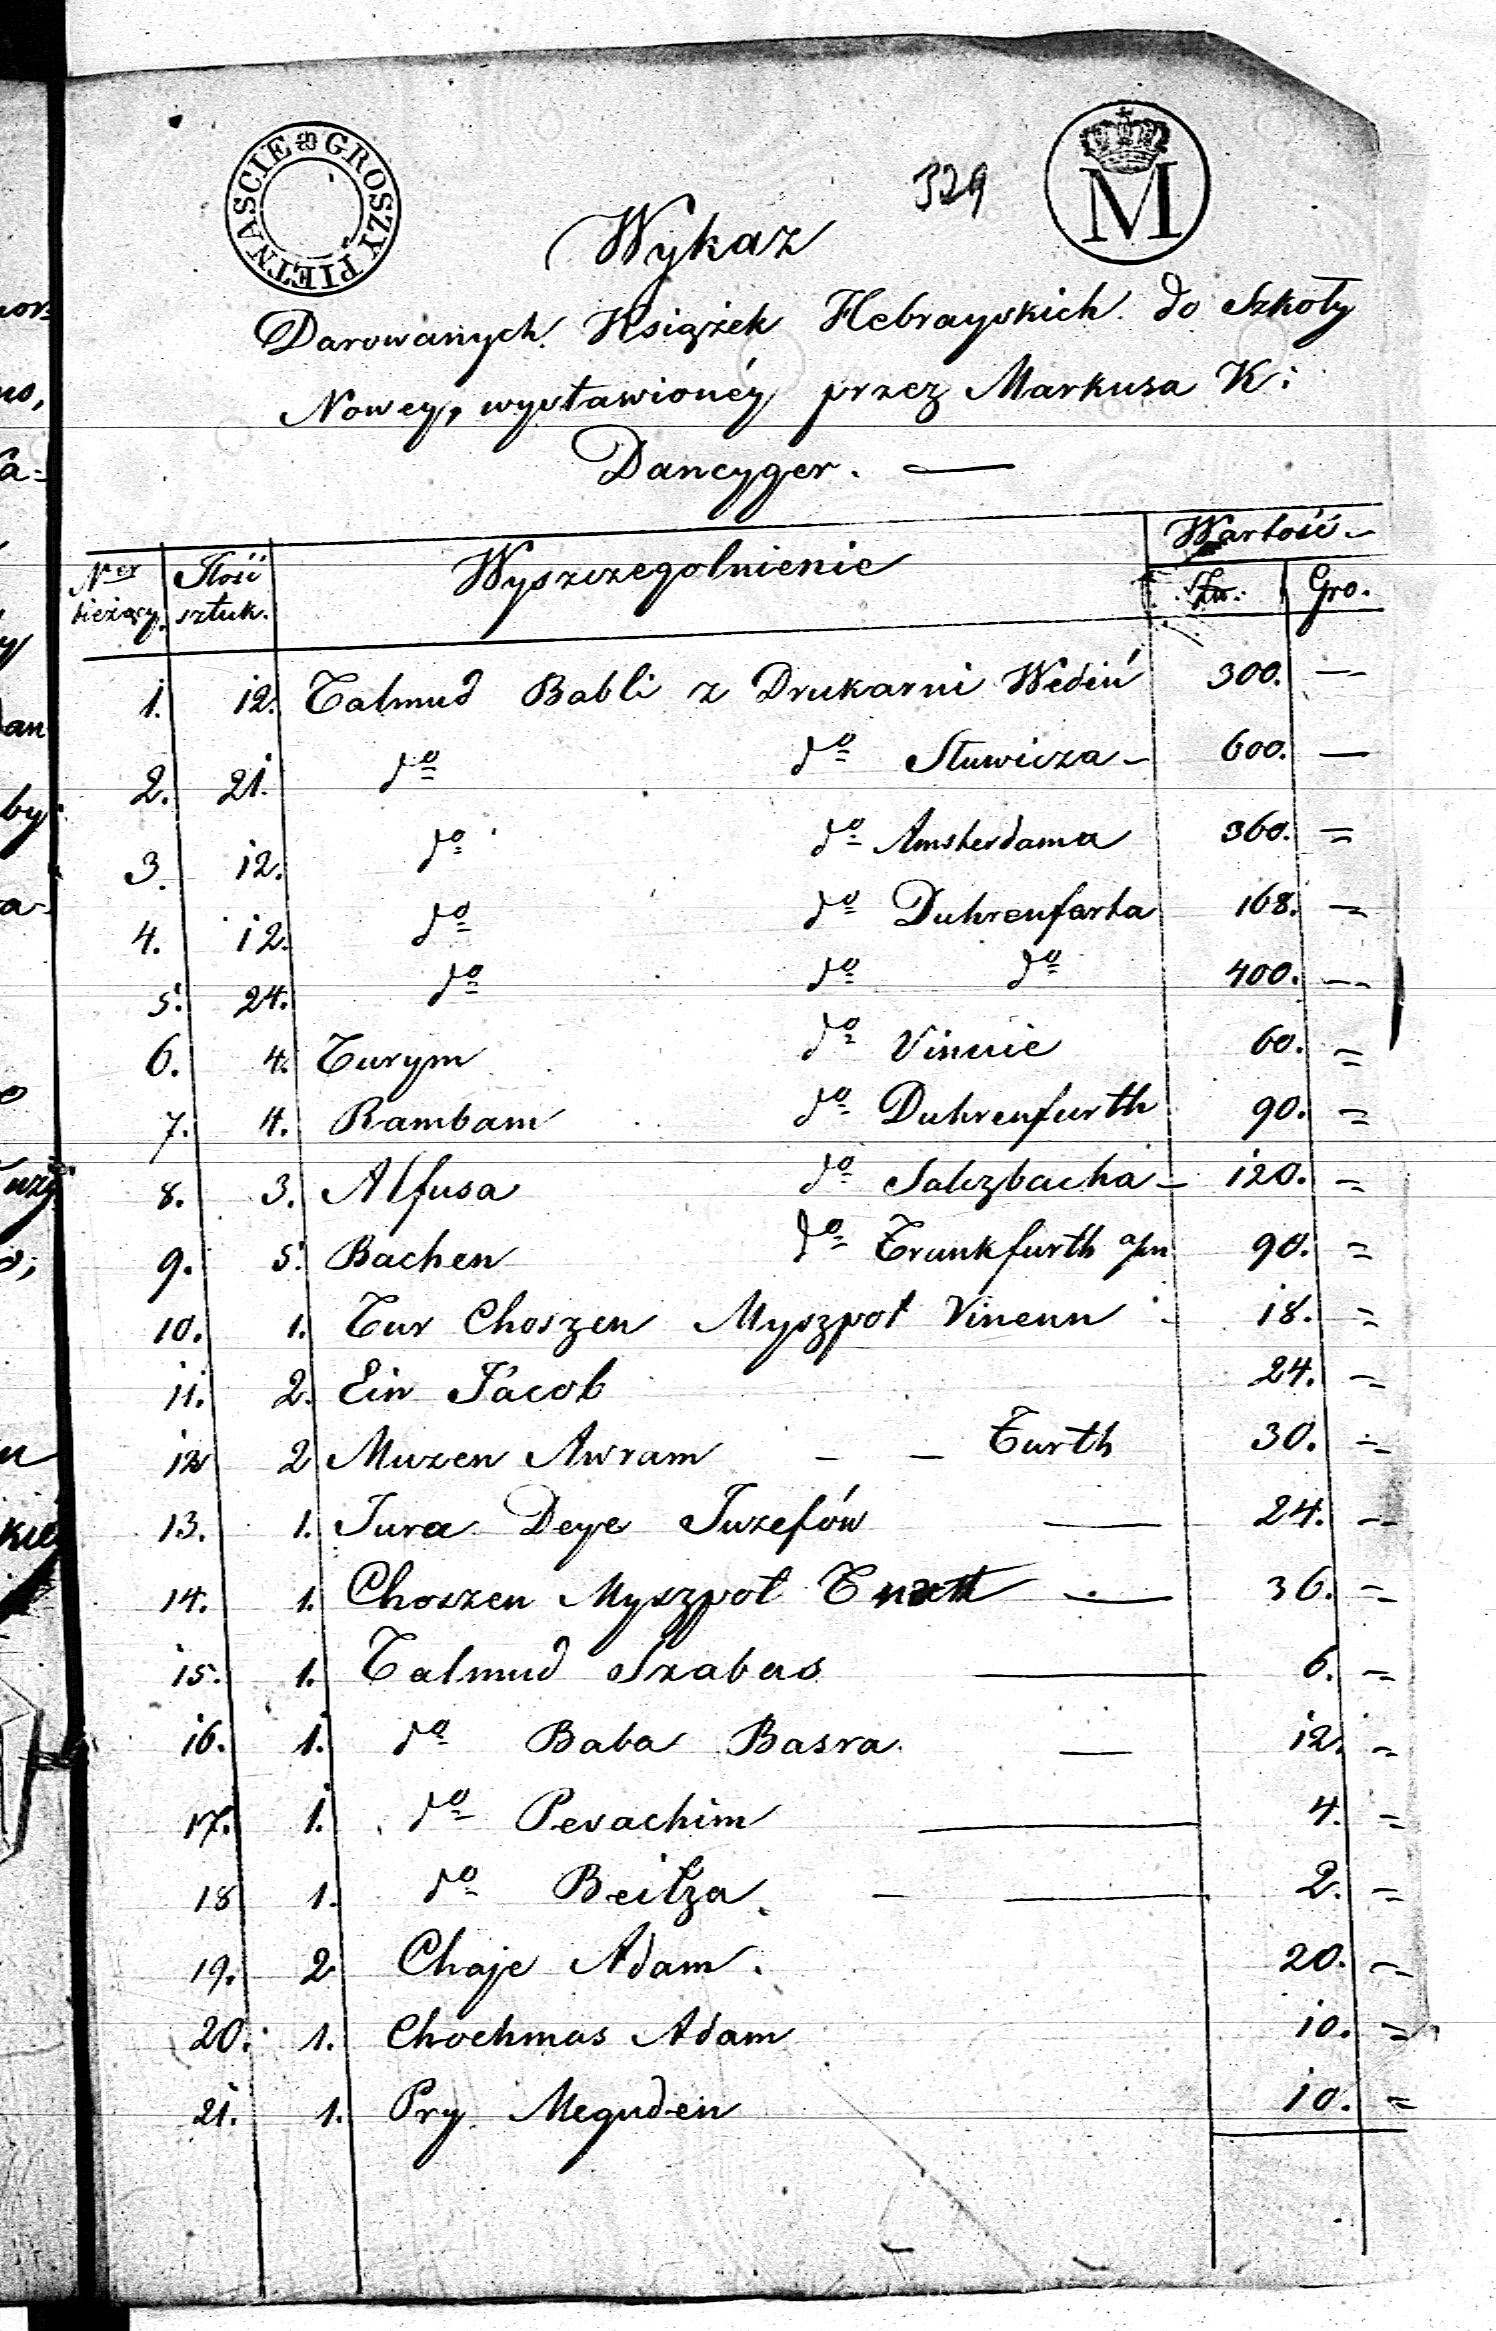 GROSZY PIETNASCIE
M
329
Wykaz
Darowanych Książek Hebrayskich do Szkoły
Nowey, wystawionéy przez Markusa K:
Dancyger. —
Ner bieżący. Ilość sztuk. Wyszczegolnienie Wartość Zło. Gro.
1. 12. Talmud Babli z Drukarni Wedeiń 300. —
2. 21. do do Sławicza 600. —
3. 12. do do Amsterdama 360. =
4. 12. do do Duhrenfarta 168. =
5. 24. do do do 400. —
6. 4. Turym do Vinnie 60. =
7. 4. Rambam do Duhrenfurth 90. =
8. 3. Alfusa do Salczbacha 120. =
9. 5. Bachen do Frankfurth a/m 90. =
10. 1. Tur Choszen Myszpot Vinenn 18. =
11. 2. Ein Jacob 24. =
12 2 Muzen Awram — — Furth 30. =
13. 1. Jura Deye Juzefów — 24. =
14. 1. Choszen Myszpot — 36. =
15. 1. Talmud Szabas — 6. =
16. 1. do Baba Basra. — 12. =
17. 1. do Pesachim — 4. =
18 1. do Beitza. — — 2. =
19. 2 Chaje Adam. 20. =
20. 1. Chochmas Adam 10. =
21. 1. Pry Megudein 10. =